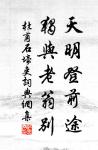 天明登前途
獨與老翁別
杜甫石壕吏詞典網集